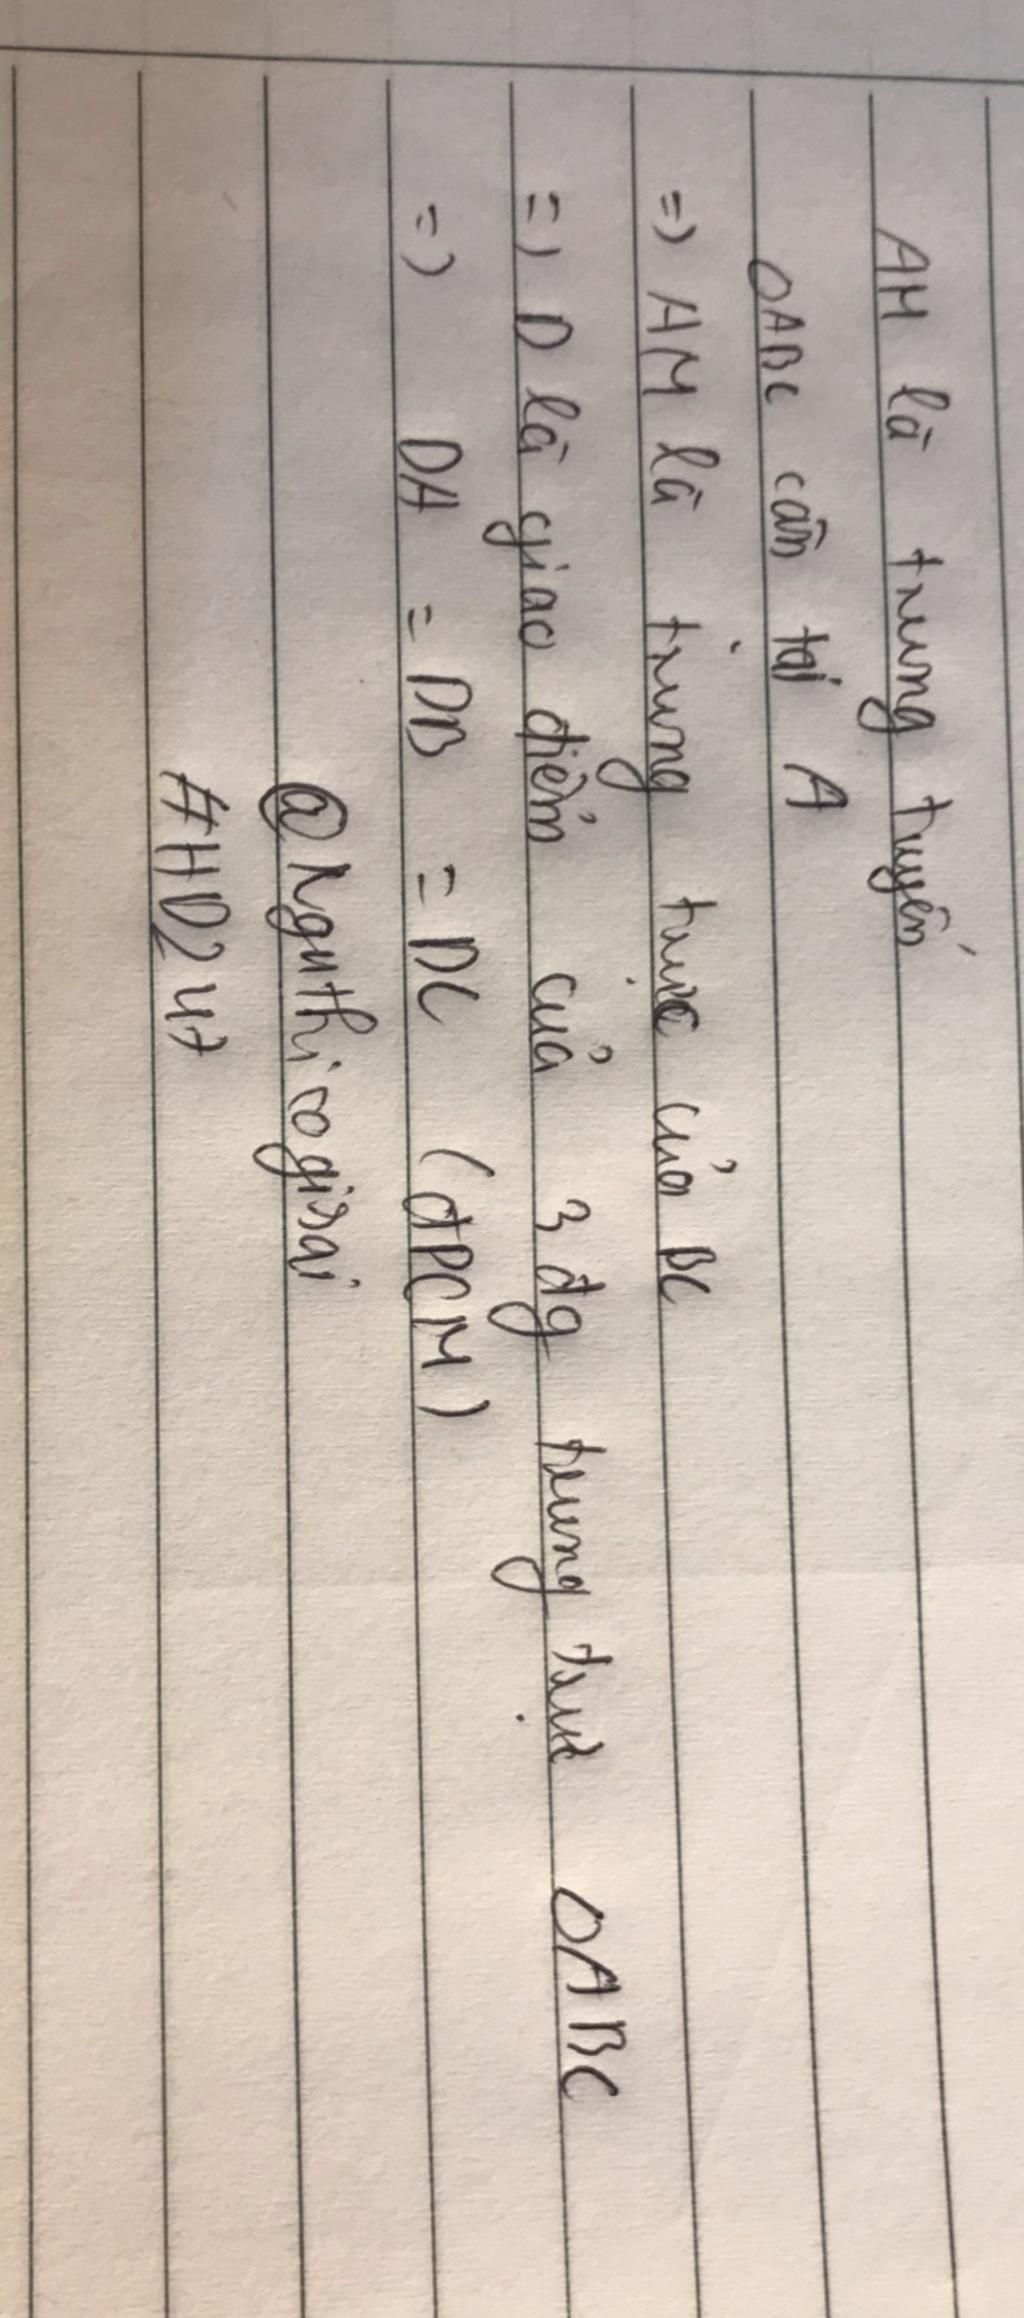 AM là trung tuyến
△ABC cân tại A
=) AM là trung trực của BC
=) D là giao điểm của 3 đg trung trực △ABC
=) DA = DB = DC (đPCM)
@Nguthicogisai
#HD247